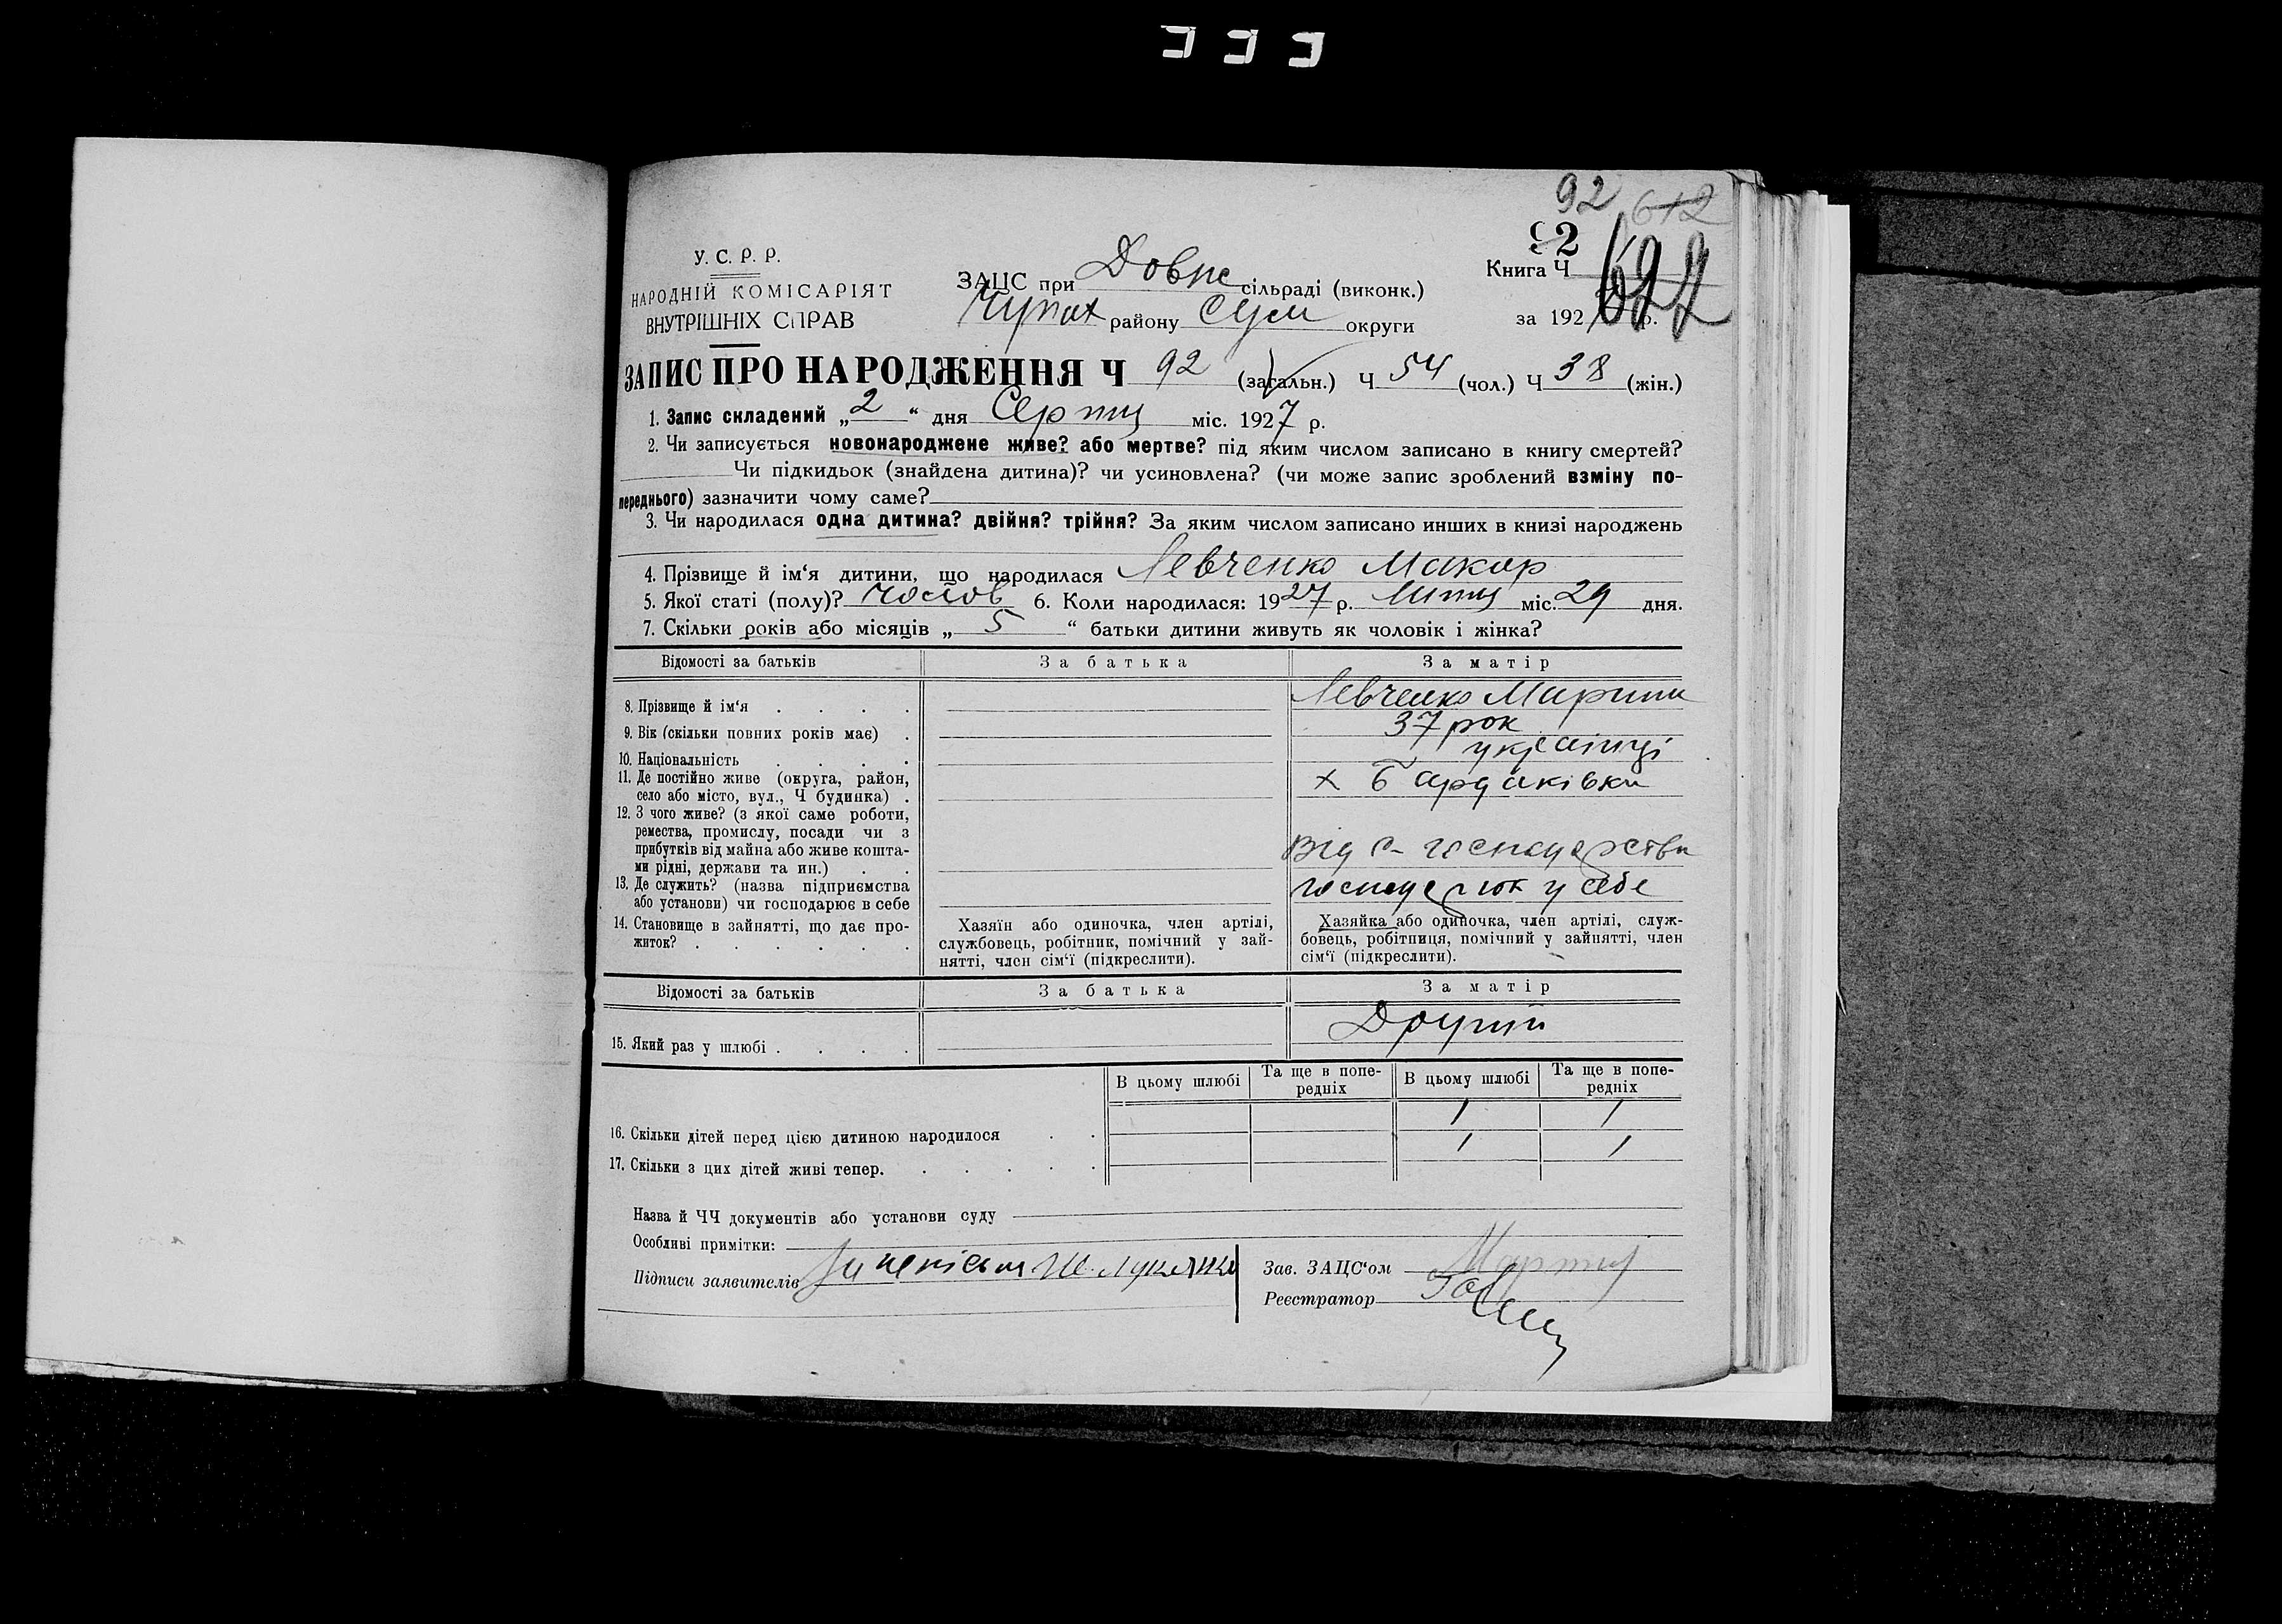 92 612
92
У. С. Р. Р.
НАРОДНІЙ КОМІСАРІЯТ
ВНУТРІШНІХ СПРАВ
ЗАЦС при Довже сільраді (виконк.)
Чупах району Сум округи
Книга Ч
за 192 р.
ЗАПИС ПРО НАРОДЖЕННЯ Ч 92 (загальн.) Ч 54 (чол.) Ч 38 (жін.)
1. Запис складений „2“ дня Серпня міс. 1927 р.
2. Чи записується новонароджене живе? або мертве? під яким числом записано в книгу смертей?
Чи підкидьок (знайдена дитина)? чи усиновлена? (чи може запис зроблений взміну по-
переднього) зазначити чому саме?
3. Чи народилася одна дитина? двійня? трійня? За яким числом записано инших в книзі народжень
4. Прізвище й ім‘я дитини, що народилася Левченко Макар
5. Якої статі (полу)? чолов 6. Коли народилася: 1927 р. Липня міс. 29 дня.
7. Скільки років або місяців „5“ батьки дитини живуть як чоловік і жінка?
Відомості за батьків За батька За матір
8. Прізвище й ім‘я Левченко Марина
9. Вік (скільки повних років має) 37 рок
10. Національність україниці
11. Де постійно живе (округа, район,
село або місто, вул., Ч будинка) х Бардаківка
12. З чого живе? (з якої саме роботи,
ремества, промислу, посади чи з
прибутків від майна або живе кошта-
ми рідні, держави та ин.) Від с-господарства
13. Де служить? (назва підприємства
або установи) чи господарює в себе у себе
14. Становище в зайнятті, що дає про-
житок?
Хазяїн або одиночка, член артілі,
службовець, робітник, помічний у зай-
нятті, член сім‘ї (підкреслити).
Хазяйка або одиночка, член артілі, служ-
бовець, робітниця, помічний у зайнятті, член
сім‘ї (підкреслити).
Відомості за батьків За батька За матір
15. Який раз у шлюбі Другий
В цьому шлюбі Та ще в попе-
редніх В цьому шлюбі Та ще в попе-
редніх
16. Скільки дітей перед цією дитиною народилося 1 1
17. Скільки з цих дітей живі тепер. 1 1
Назва й ЧЧ документів або установи суду
Особливі примітки:
Підписи заявителів
Зав. ЗАЦС‘ом
Реєстратор